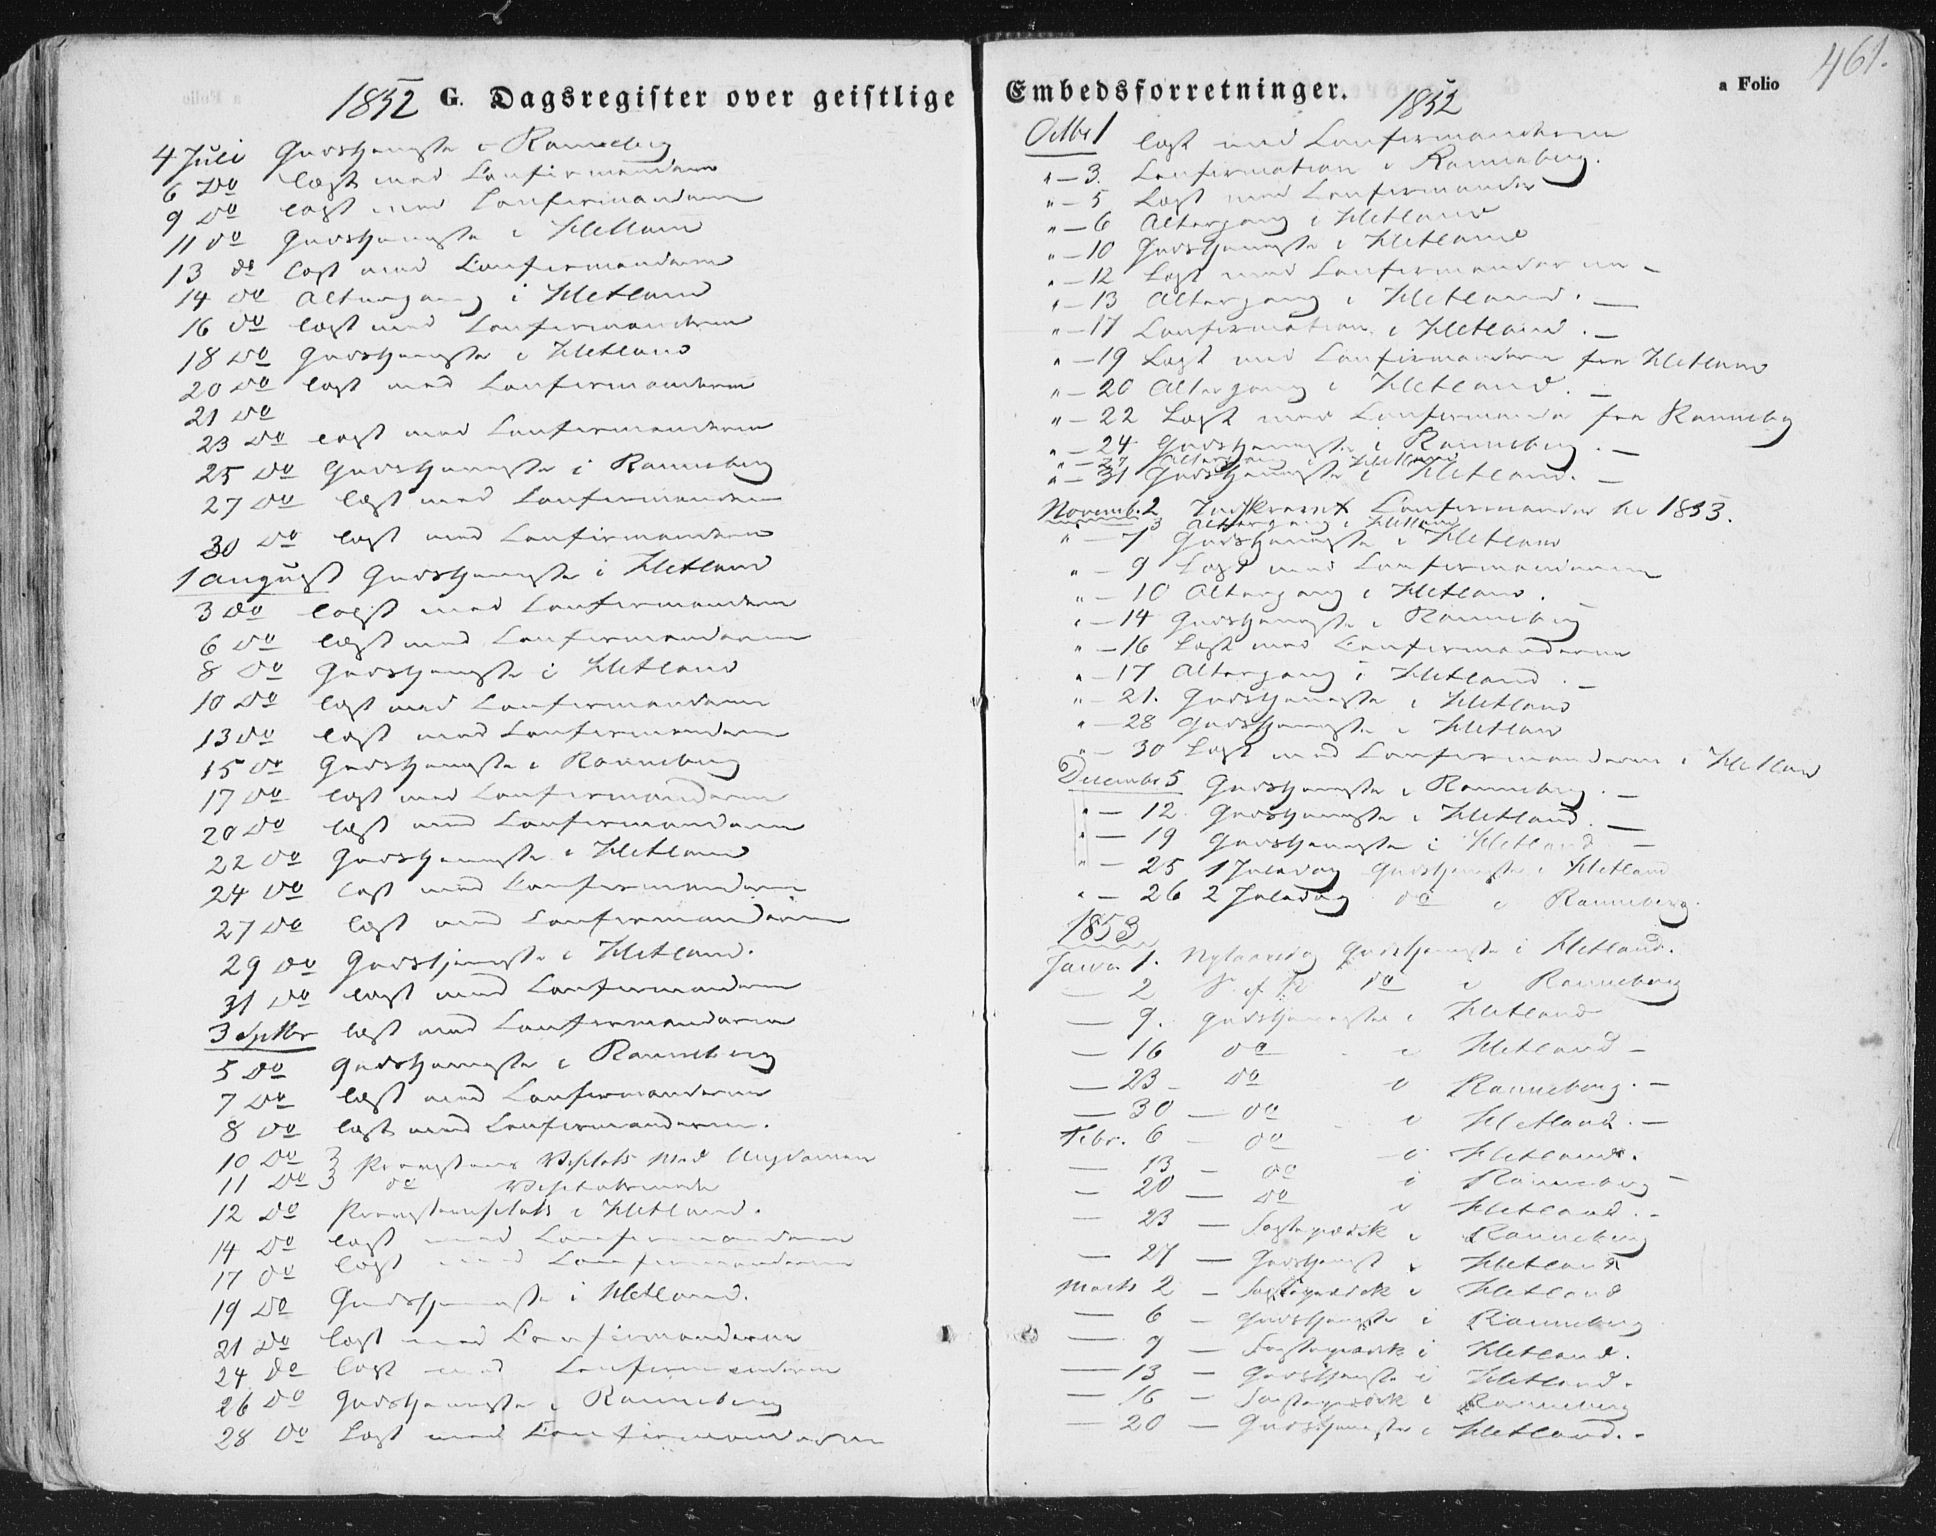 1852 G. Dagsregister over geistlige
4 Juli Gudstjeneste i Ranneberg
6 Do læst med Confirmanderne
9 Do læst med Confirmanderne
11 do Gudstjeneste i Hetland
13 do læst med Confirmanderne
14 do Altergang i Hetland
16 do læst med Confirmanderne
18 Do Gudstjeneste i Hetland
20 Do læst med Confirmanderne
21 Do
23 Do læst med Confirmanderne
25 Do Gudstjeneste i Ranneberg
27 Do læst med Confirmanderne
30 Do læst med Confirmanderne
1 august Gudstjeneste i Hetland
3 Do læst med Confirmanderne
6 Do læst med Confirmanderne
8 Do Gudstjeneste i Hetland
10 Do læst med Confirmanderne
13 do læst med Confirmanderne
15 do Gudstjeneste i Ranneberg
17 do læst med Confirmanderne
20 Do læst med Confirmanderne
22 do Gudstjeneste i Hetland
24 do læst med Confirmanderne
27 Do læst med Confirmanderne
29 do Gudstjeneste i Hetland.
31 do læst med Confirmanderne
3 Septbr læst med Confirmanderne
5 do Gudstjeneste i Ranneberg
7 Do læst med Confirmanderne
8 do læst med Confirmanderne.
10 Do } Provstens Visitats med Ungdommen
11 Do } do
12 Do Provstevisitats i Hetland.
14 Do læst med Confirmanderne
17 do læst med Confirmanderne
19 Do Gudstjeneste i Hetland.
21 Do læst med Confirmanderne
24 do læst med Confirmanderne
26 Do Gudstjeneste i Ranneberg
28 do Læst med Confirmanderne
Embedsforretninger. 1852 a Folio 461.
Octbr 1 læst med Confirmanderne
" — 3. Confirmation i Ranneberg.
" — 5 Læst med Confirmander
" — 6 Altergang i Hetland
" — 10 Gudstjeneste i Hetland
" — 12 Læst med Confirmanderne –
" — 13 Altergang i Hetland. —
" — 17 Confirmation i Hetland. —
" — 19 Læst med Confirmanderne fra Hetland
" — 20 Altergang i Hetland. —
" — 22 Læst med Confirmander fra Ranneberg
" — 24 Gudstjeneste i Ranneberg. —
" — 27 Altergang i Hetland
" — 31 Gudstjeneste i Hetland. —
Novemb. 2 Indskrevet Confirmander for 1853.
" 3 Altergang i Hetland
" — 7 Gudstjeneste i Hetland
" — 9 Læst med Confirmanderne
" — 10 Altergang i Hetland.
" — 14 Gudstjeneste i Ranneberg —
" — 16 Læst med Confirmanderne
" — 17 Altergang i Hetland. —
" — 21. Gudstjeneste i Hetland
" — 28 Gudstjeneste i Hetland
" — 30 Læst med Confirmanderne i Hetland
Decembr 5 Gudstjeneste i Ranneberg. —
" — 12. Gudstjeneste i Hetland. —
" — 19 Gudstjeneste i Hetland —
" — 25 1 Juledag Gudstjeneste i Hetland
" — 26 2 Juledag do i Ranneberg.
1853
Janua 1. Nytaarsdag Gudstjeneste i Hetland.
— 2 do i Ranneberg
— 9. Gudstjeneste i Hetland
— 16 do i Hetland –
— 23 – do i Ranneberg. –
— 30 — do i Hetland. –
Febr. 6 – do i Hetland.
— 13 – do i Ranneberg –
— 20 — do i Hetland. –
— 23 — Fasteprædik i Ranneberg
— 27 — Gudstjenest i Hetland
Marts 2 – Fasteprædik i Hetland
— 6 – Gudstjeneste i Ranneberg
— 9 – Fasteprædik i Hetland.
— 13 – Gudstjeneste i Hetland.
— 16 – Fasteprædik i Ranneberg
— 20 — Gudstjeneste i Hetland. –